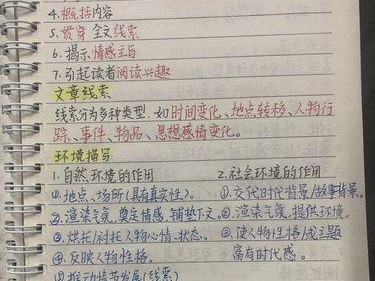 4.概括内容
5.贯穿全文线索
6.揭示情感主旨
7.引起读者阅读兴趣
文章线索
线索分为多种类型.如时间变化、地点转移、人物行
踪、事件、物品、思想感情变化。
环境描写
1.自然环境的作用 2.社会环境的作用
①.地点、场所(具有真实性)。 ①.交代时代背景/故事背景。
②.渲染气氛.奠定情感.铺垫下文。 ②.渲染气氛.提供环境。
③.烘托/衬托人物心情.状态。 ③.使人物性格/或主题
④.反映人物性格。 富有时代感。
⑤推动情节发展(线索)